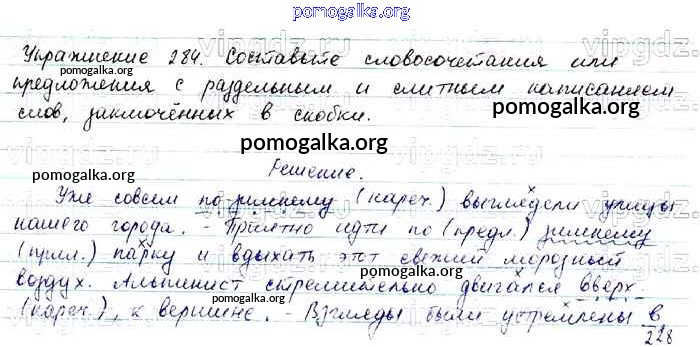 pomogalka.org
Упражнение 284. Составьте словосочетания или
pomogalka.org
предложения с раздельным и слитным написанием
слов, заключённых в скобки.
pomogalka.org
Решение.
pomogalka.org
Уже совсем по-зимнему (нареч.) выглядели улицы
нашего города. - Приятно идти по (предл.) зимнему
pomogalka.org
(прил.) парку и вдыхать этот свежий морозный
pomogalka.org
воздух. Альпинист стремительно двигался вверх
pomogalka.org
(нареч.), к вершине. - Взгляды были устремлены в
228